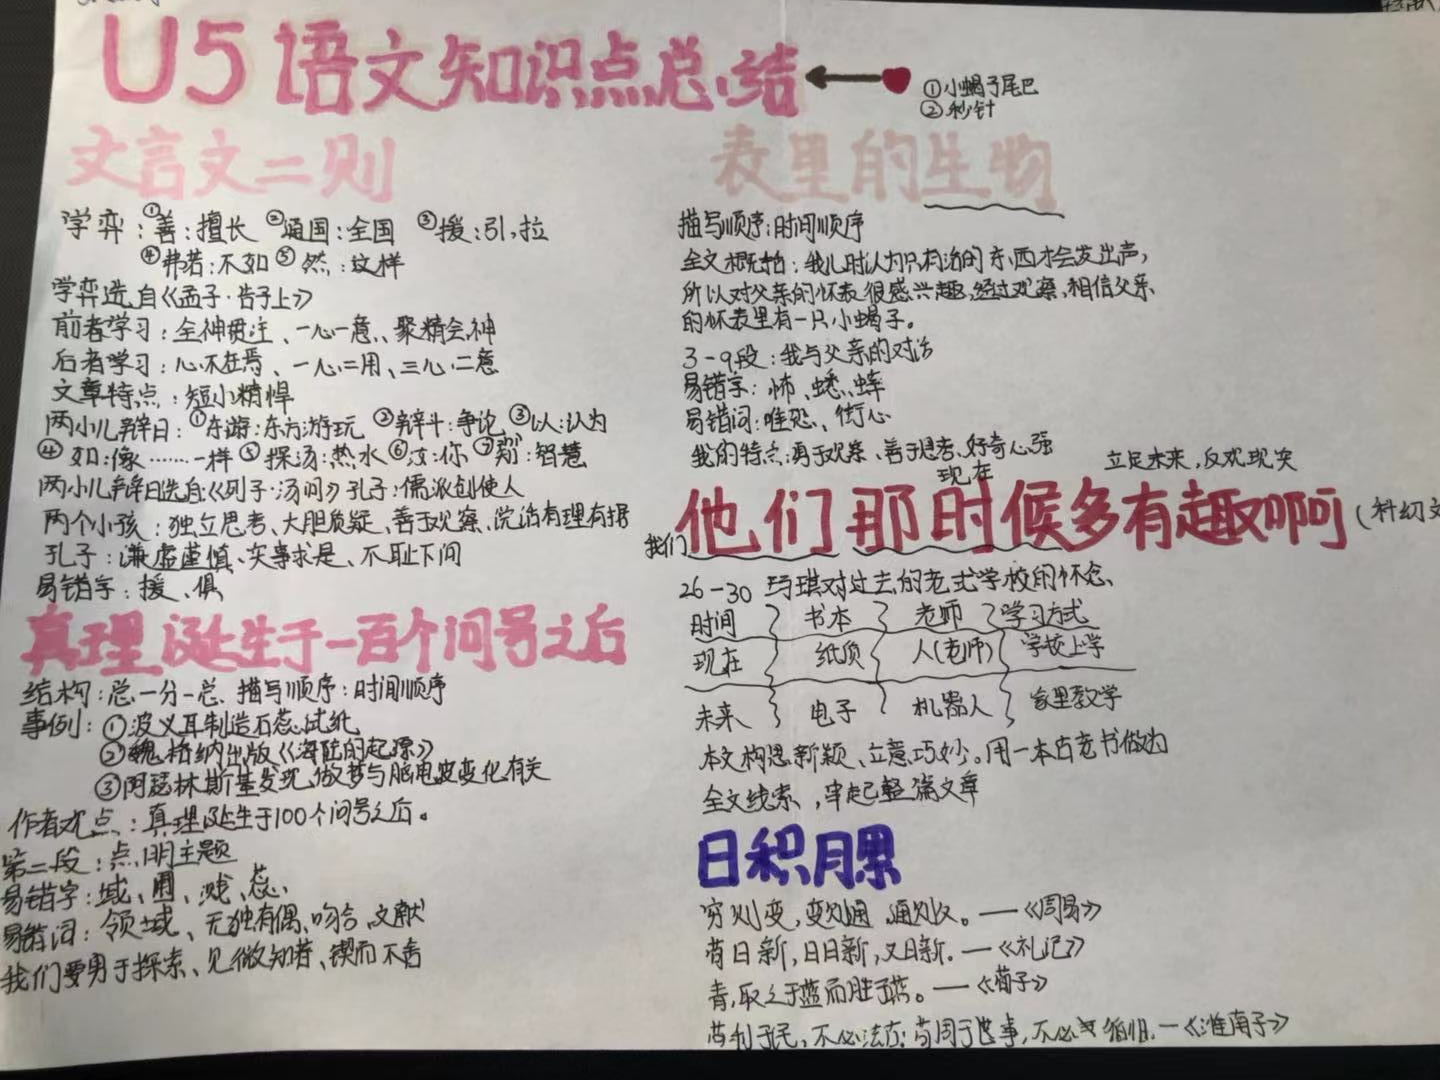 U5 语文知识点总结
①小蝎子尾巴
②秒针
文言文二则
学弈:①善:擅长 ②通国:全国 ③援:引,拉
④弗若:不如 ⑤然:这样
学弈选自《孟子·告子上》
前者学习:全神贯注、一心一意、聚精会神
后者学习:心不在焉、一心二用、三心二意
文章特点:短小精悍
两小儿辩日:①东游:东方游玩 ②辩斗:争论 ③以:认为
④如:像……一样 ⑤探汤:热水 ⑥汝:你 ⑦知:智慧
两小儿辩日选自《列子·汤问》孔子:儒派创使人
两个小孩:独立思考、大胆质疑、善于观察、说话有理有据
孔子:谦虚谨慎、实事求是、不耻下问
易错字:援、俱
真理诞生于一百个问号之后
结构:总一分一总 描写顺序:时间顺序
事例:①波义耳制造石蕊试纸
②魏格纳出版《海陆的起源》
③阿瑟林斯基发现做梦与脑电波变化有关
作者观点:真理诞生于100个问号之后。
第二段:点明主题
易错字:域、圃、溅、蕊、
易错词:领域、无独有偶、吻合、文献
我们要勇于探索、见微知著、锲而不舍
表里的生物
描写顺序:时间顺序
全文概括:我儿时认为只有活的东西才会发出声,
所以对父亲的怀表很感兴趣,经过观察,相信父亲
的怀表里有一只小蝎子。
3-9段:我与父亲的对话
易错字:怖、蟋、蟀
易错词:唯恐、
我的特点:勇于观察、善于思考、好奇心强
现在
立足未来,反欢现实
我们
他们那时候多有趣啊(科幻文
26-30 玛琪对过去的老式学校的怀念、
时间 书本 老师 学习方式
现在 纸质 人(老师) 学校上学
未来 电子 机器人 家里教学
本文构思新颖、立意巧妙。用一本古老书做为
全文线索,串起整篇文章
日积月累
穷则变,变则通,通则久。—《周易》
苟日新,日日新,又日新.—《礼记》
青,取之于蓝而胜于蓝。—《荀子》
苟利于民,不必法古;苟周于事,不必循旧.—《淮南子》